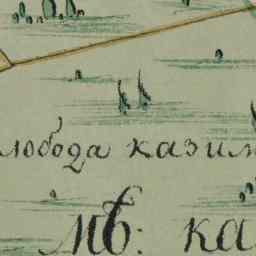 лобода казим
мѣ: ка